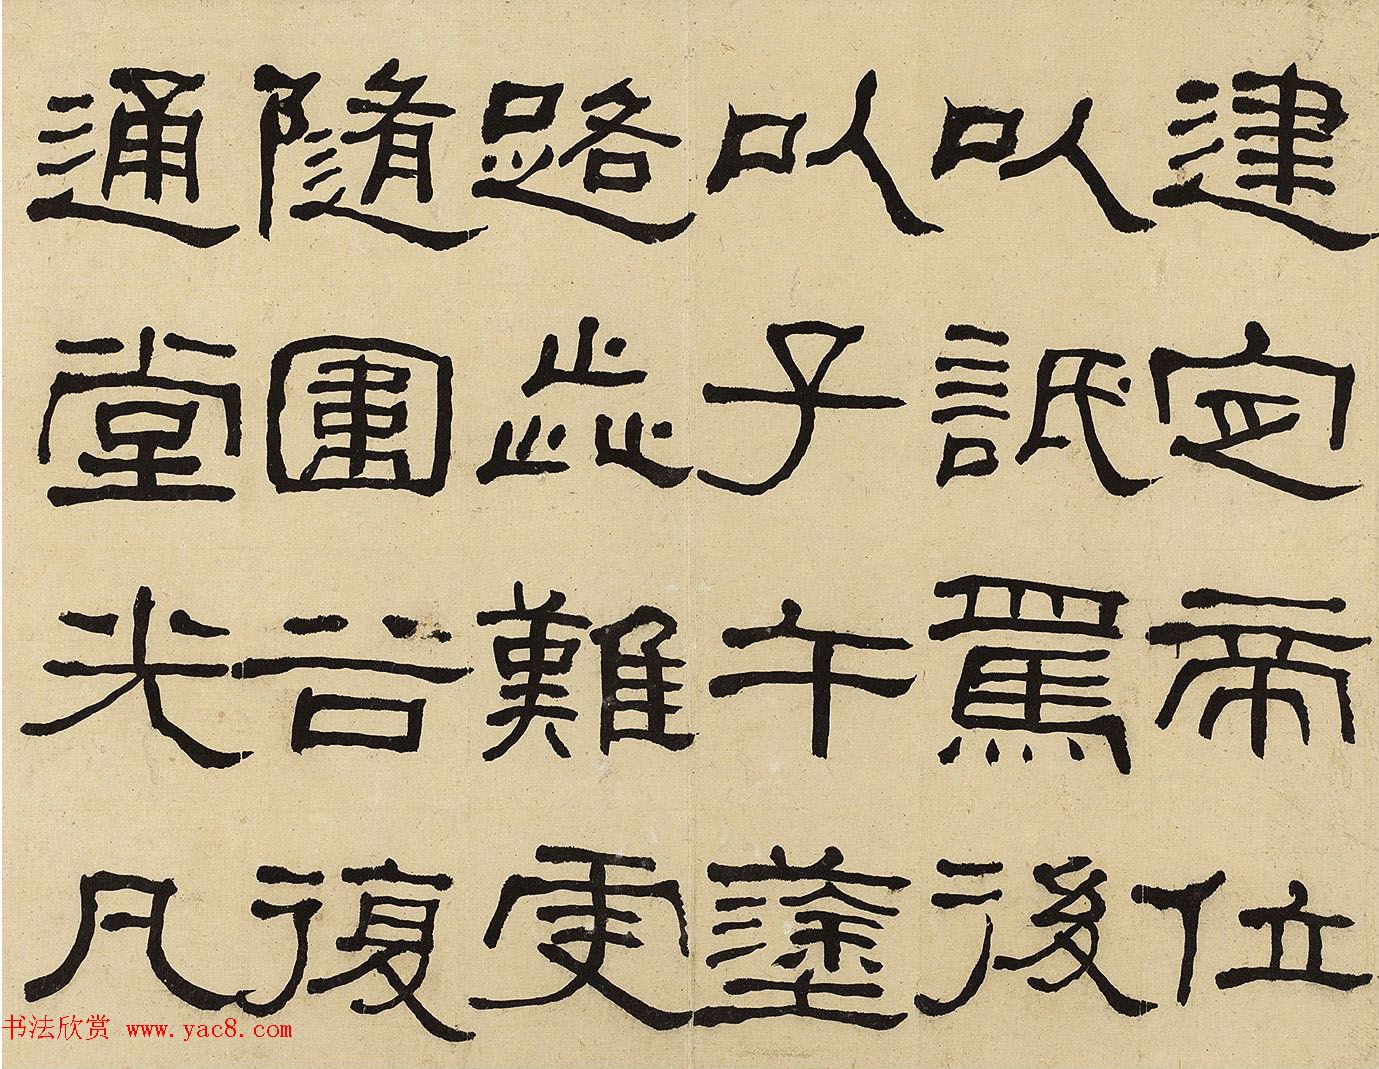 建定帝位
以詆焉後
以子午塗
路歮難更
隨圍谷復
通堂光凡
书法欣赏 www.yac8.com